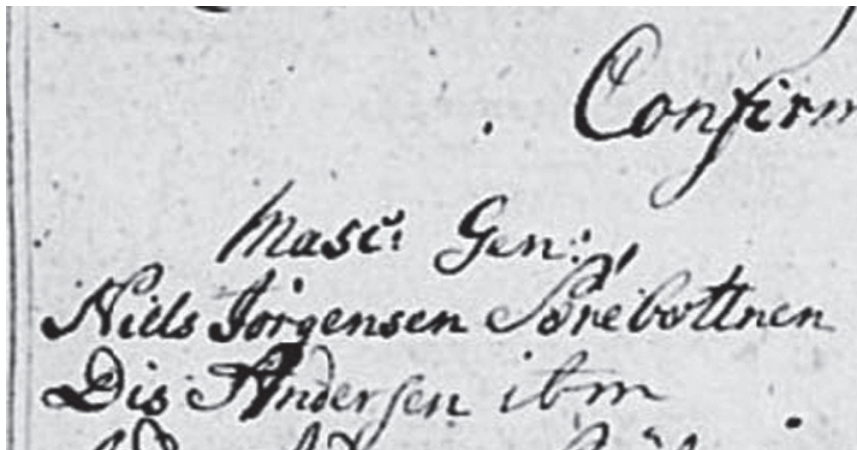 Confirm
Masc: Gen:
Niels Jørgensen Sørebottnen
Dis Andersen ibm